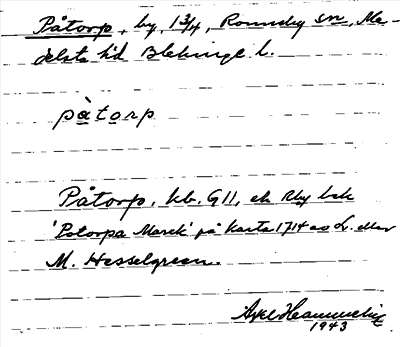 Påtorp, by, 1 3/4, Ronneby sn, Me-
delsta hd Blekinge l.
pàtorp
Påtorp, kb. G11, ek Rby bck
'Potorpa Marck' på karta 1714 as L.
M. Hesselgreen.
Axel Hammelin
1943